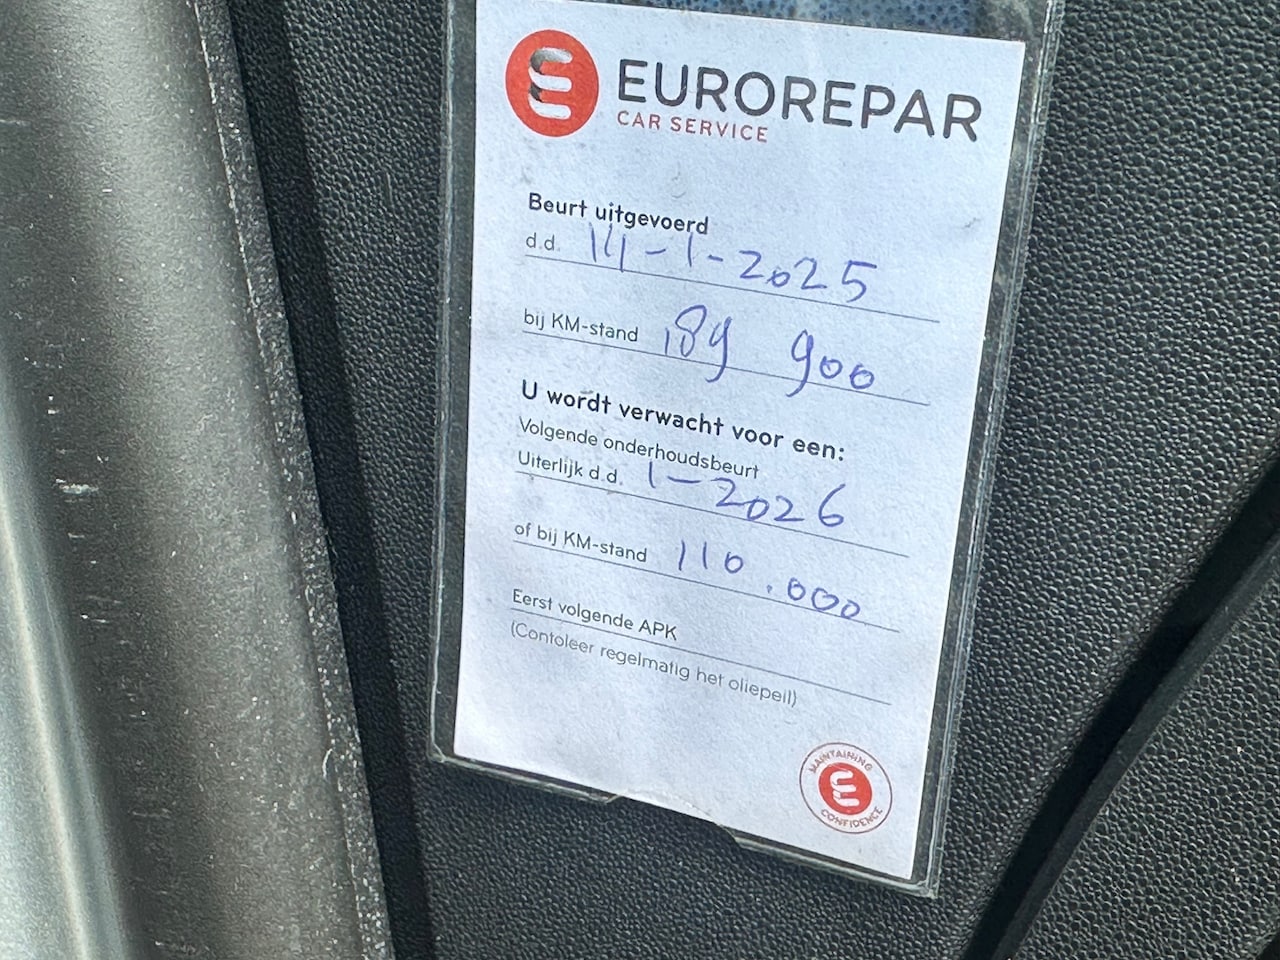 EUROREPAR
CAR SERVICE
Beurt uitgevoerd
d.d. 14-1-2025
bij KM-stand 189 900
U wordt verwacht voor een:
Volgende onderhoudsbeurt
Uiterlijk d.d. 1-2026
of bij KM-stand 110.000
Eerst volgende APK
(Contoleer regelmatig het oliepeil)
MAINTAINING
CONFIDENCE